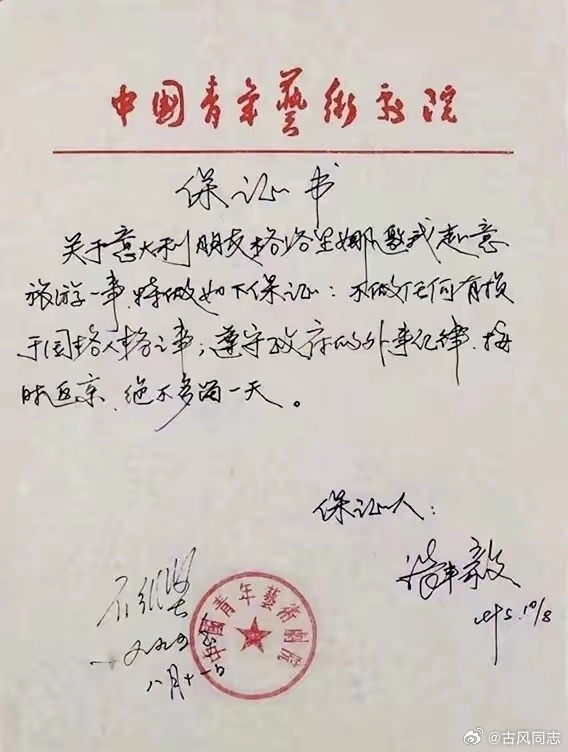 中国青年藝術剧院
保证书
关于意大利朋友格洛里娜邀我赴意
旅游一事,特做如下保证:不做任何有损
于国格人格之事;遵守政府的外事纪律,按
时返京,绝不多留一天。
保证人:
石维坚
一九九四
八月十一日
中國青年藝術劇院
@古风同志